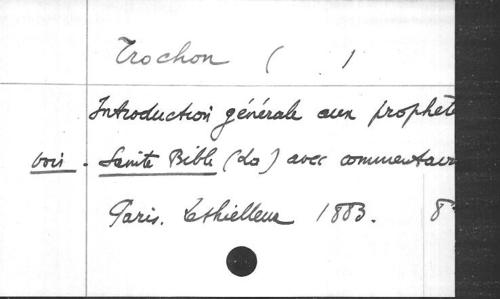 Trochon ( )
Introduction générale aux prophète
voir. Sainte Bible (La) avec commentair
Paris. Lethielleux 1883. 8°